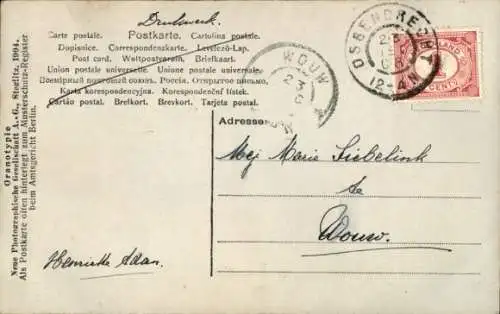 Drukwerk.
Carte postale. Postkarte. Cartolina postale.
Dopisnice. Correspondenzkarte. Levelező-Lap.
Post card. Weltpostverein. Briefkaart.
Union postale universelle. Unione postale universale.
Всемірный почтовый союзъ. Россія. Открытое письмо.
Karta korespondencyjna. Korespondenční lístek.
Cartão postal. Brefkort. Brevkort. Tarjeta postal.
WOUW
23
OSSENDRECHT
23
12-4N
CENT
Adresse
Mej Marie Siebelink
te
Wouw.
Henriette Adan.
Oranotypie
Neue Photographische Gesellschaft A.-G., Steglitz, 1904.
Als Postkarte offen hinterlegt zum Musterschutz-Register
beim Amtsgericht Berlin.